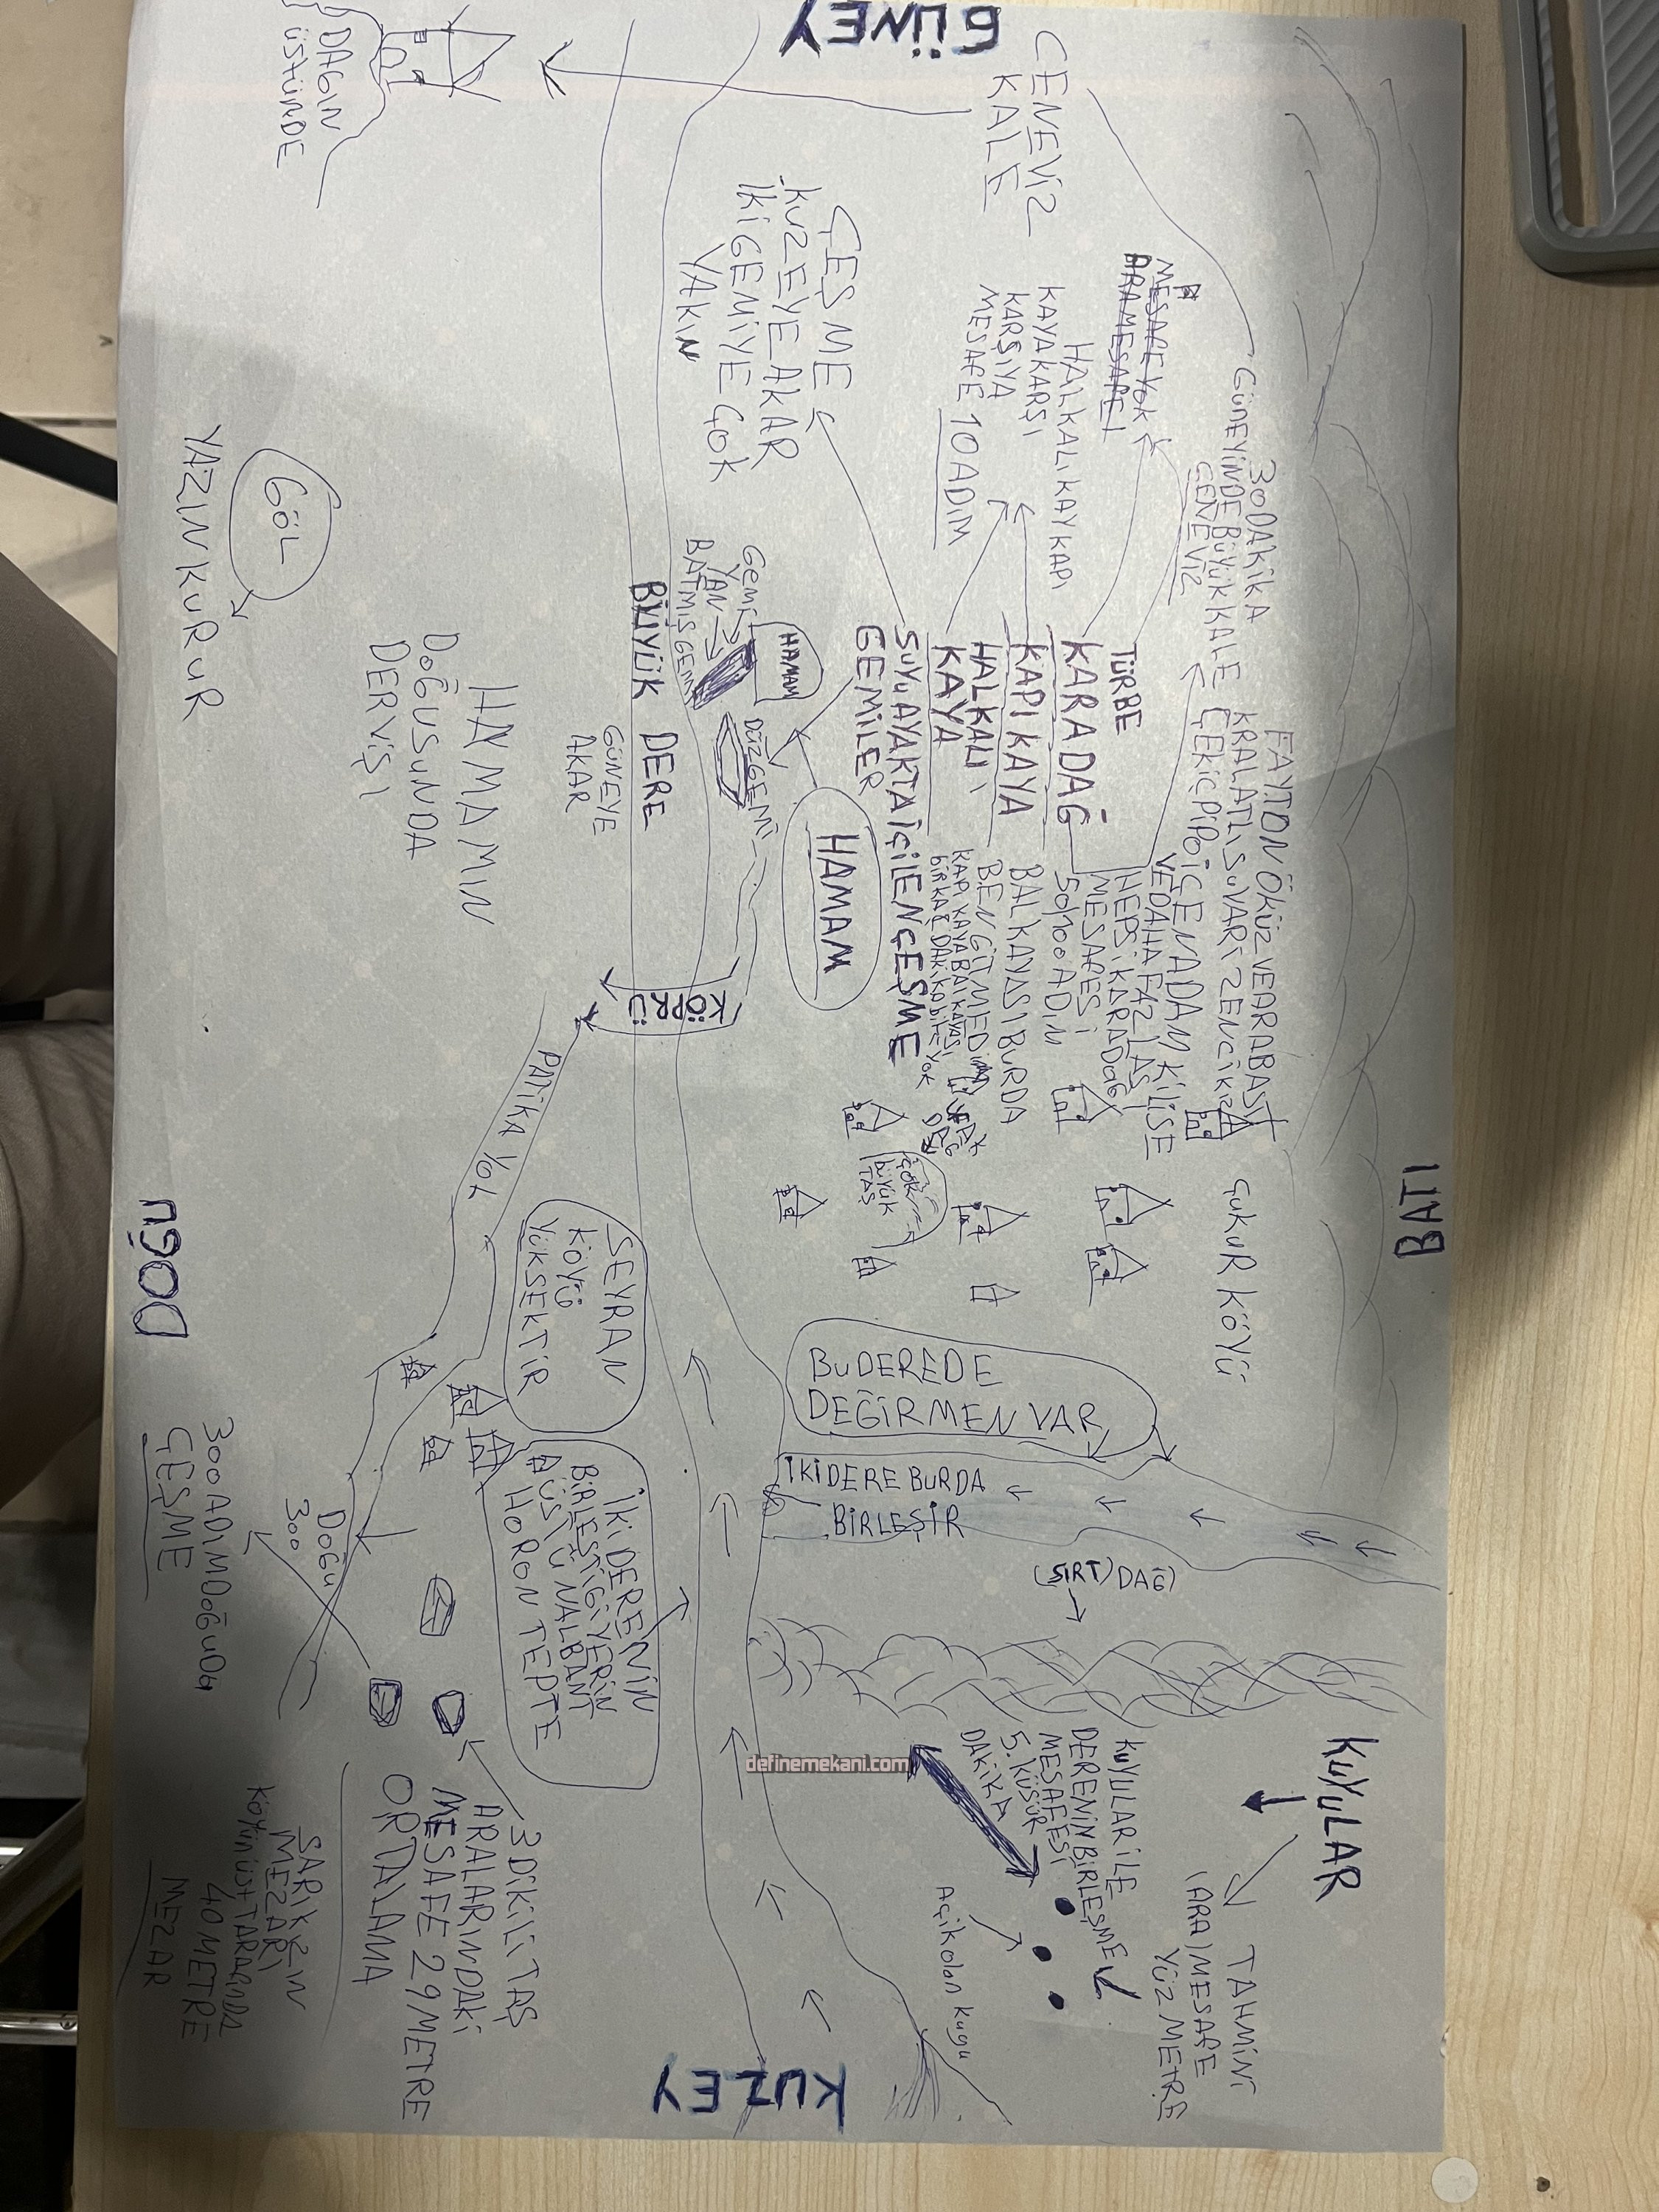 GÜNEY
BATI
KUZEY
DOĞU
CENEVİZ
KALE
DAĞIN
ÜSTÜNDE
MESAFE YOK
ARA MESAFELİ
HALKALI KAY KAPI
KAYA KARŞI
KARŞIYA
MESAFE 10 ADIM
ÇEŞME
KUZEYE AKAR
İKİ GEMİYE ÇOK
YAKIN
30 DAKİKA
GÜNEYİNDE BÜYÜK KALE
CENEVİZ
TÜRBE
KARADAĞ
KAPI KAYA
HALKALI
KAYA
SUYU AYAKTA İÇİLEN ÇEŞME
GEMİLER
FAYTON ÖKÜZ VE ARABASI
KRAL ATLI SUVARİ ZENCİ KIZ
ÇEKİÇ PİPO İÇEN ADAM KİLİSE
VE DAHA FAZLASI
HEPSİ KARADAĞ
MESAFESİ
50/100 ADIM
BAL KAYASI BURDA
BEN GİTMEDİM
KAPI KAYA BAL KAYASI
BİRKAÇ DAKİKA BİLE YOK
UFAK
DAĞ
ÇOK
BÜYÜK
TAŞ
ÇUKUR KÖYÜ
HAMAM
GEMİ
YAN
BATMIŞ GEMİ
DÜZ GEMİ
HAMAM
BÜYÜK DERE
GÜNEYE
AKAR
KÖPRÜ
PATİKA YOL
HAMAMIN
DOĞUSUNDA
DERVİŞİ
GÖL
YAZIN KURUR
SEYRAN
KÖYÜ
YÜKSEKTİR
BU DEREDE
DEĞİRMEN VAR
İKİ DERE BURDA
BİRLEŞİR
(SIRT) DAĞ)
İKİ DERENİN
BİRLEŞTİĞİ YERİN
ÜSTÜ NALBANT
HORON TEPTE
DOĞU
300
300 ADIM DOĞUDA
ÇEŞME
3 DİKİLİ TAŞ
ARALARINDAKİ
MESAFE 29 METRE
ORTALAMA
SARIKIZIN
MEZARI
KÖYÜN ÜST TARAFINDA
40 METRE
MEZAR
KUYULAR
TAHMİNİ
(ARA) MESAFE
YÜZ METRE
KUYULAR İLE
DERENİN BİRLEŞME
MESAFESİ
5. KÜSÜR
DAKİKA
Açik olan kuyu
definemekani.com